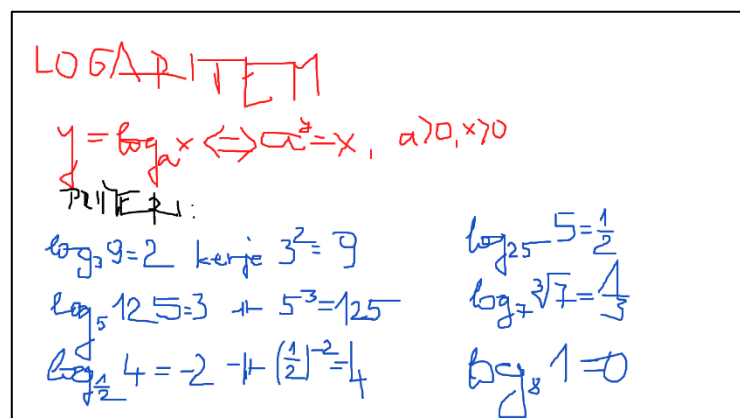 LOGARITEM
y = logₐ x ⇔ aʸ = x, a>0, x>0
PRIMERI:
log₃ 9 = 2 ker je 3² = 9
log₅ 125 = 3 -||- 5³ = 125
log_{1/2} 4 = -2 -||- (1/2)⁻² = 4
log₂₅ 5 = 1/2
log₇ ∛7 = 1/3
log₈ 1 = 0